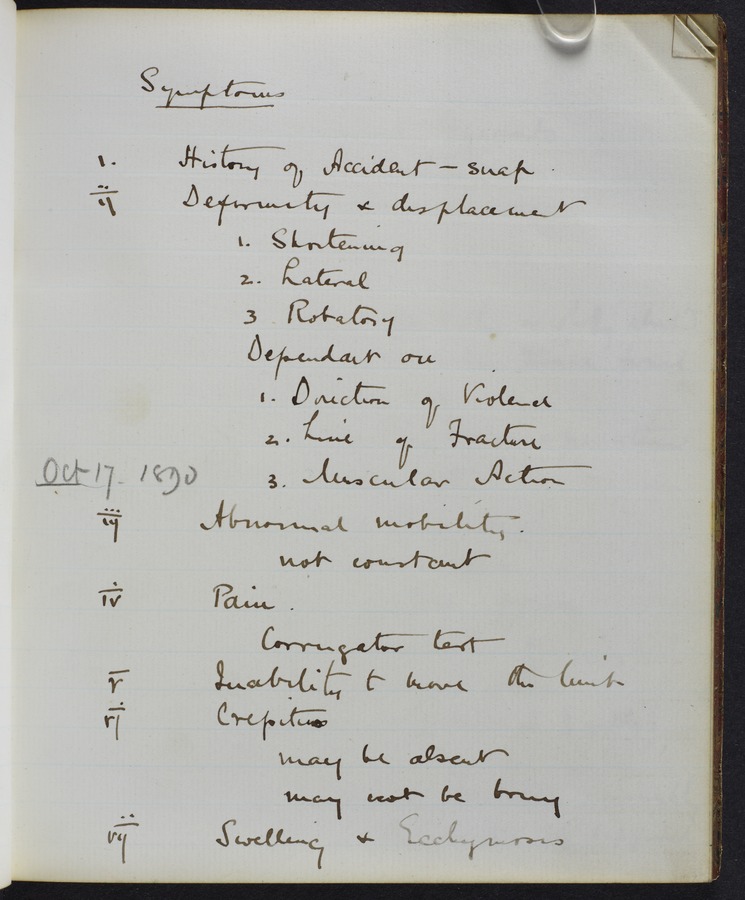 Symptoms
i. History of Accident - snap.
ij Deformity & displacement
1. Shortening
2. Lateral
3 Rotatory
Dependant on
1. Direction of Violence
2. Line of Fracture
Oct 17. 1890
3. Muscular Action
iij Abnormal mobility.
not constant
iv Pain.
Corrugator test
v Inability to move the limb
vj Crepitus
may be absent
may not be bony
vij Swelling & Ecchymosis